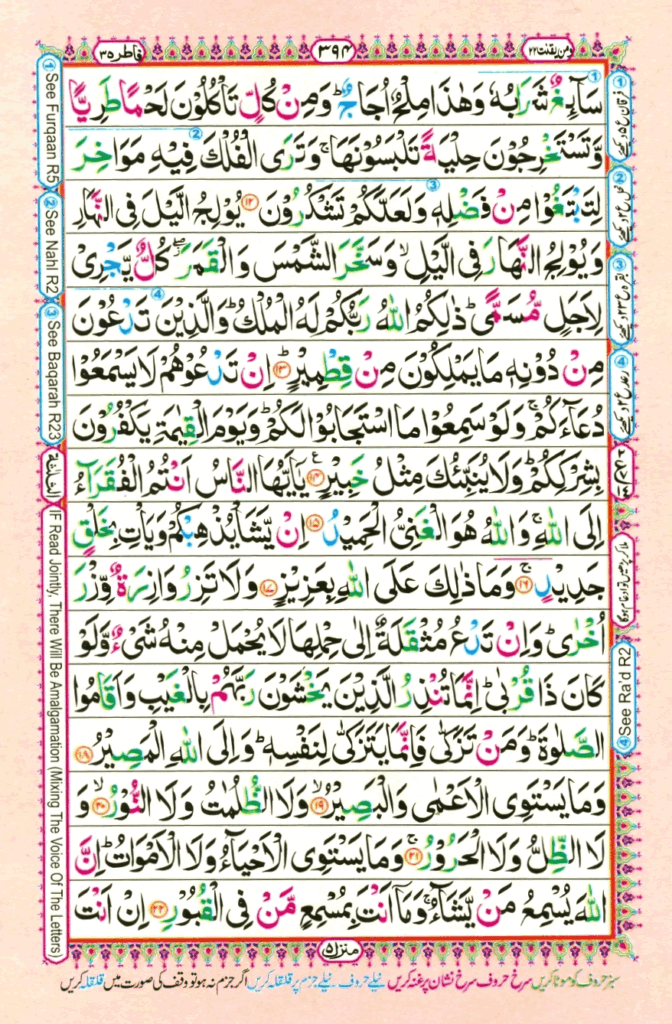 فاطر ٣٥
٣٩٤
ومن یقنت ٢٢
سَآئِغٌ شَرَابُهٗ وَهٰذَا مِلْحٌ اُجَاجٌ ؕ وَمِنْ كُلٍّ تَاْكُلُوْنَ لَحْمًا طَرِیًّا
وَّتَسْتَخْرِجُوْنَ حِلْیَةً تَلْبَسُوْنَهَا ۚ وَتَرَی الْفُلْكَ فِیْهِ مَوَاخِرَ
لِتَبْتَغُوْا مِنْ فَضْلِهٖ وَلَعَلَّكُمْ تَشْكُرُوْنَ ﴿١٢﴾ یُوْلِجُ الَّیْلَ فِی النَّهَارِ
وَیُوْلِجُ النَّهَارَ فِی الَّیْلِ ۙ وَسَخَّرَ الشَّمْسَ وَالْقَمَرَ ۖ كُلٌّ یَّجْرِیْ
لِاَجَلٍ مُّسَمًّی ؕ ذٰلِكُمُ اللّٰهُ رَبُّكُمْ لَهُ الْمُلْكُ ؕ وَالَّذِیْنَ تَدْعُوْنَ
مِنْ دُوْنِهٖ مَا یَمْلِكُوْنَ مِنْ قِطْمِیْرٍ ﴿١٣﴾ اِنْ تَدْعُوْهُمْ لَا یَسْمَعُوْا
دُعَآءَكُمْ ۚ وَلَوْ سَمِعُوْا مَا اسْتَجَابُوْا لَكُمْ ؕ وَیَوْمَ الْقِیٰمَةِ یَكْفُرُوْنَ
بِشِرْكِكُمْ ؕ وَلَا یُنَبِّئُكَ مِثْلُ خَبِیْرٍ ﴿١٤﴾ یٰۤاَیُّهَا النَّاسُ اَنْتُمُ الْفُقَرَآءُ
اِلَی اللّٰهِ ۚ وَاللّٰهُ هُوَ الْغَنِیُّ الْحَمِیْدُ ﴿١٥﴾ اِنْ یَّشَاْ یُذْهِبْكُمْ وَیَاْتِ بِخَلْقٍ
جَدِیْدٍ ﴿١٦﴾ وَمَا ذٰلِكَ عَلَی اللّٰهِ بِعَزِیْزٍ ﴿١٧﴾ وَلَا تَزِرُ وَازِرَةٌ وِّزْرَ
اُخْرٰی ؕ وَاِنْ تَدْعُ مُثْقَلَةٌ اِلٰی حِمْلِهَا لَا یُحْمَلْ مِنْهُ شَیْءٌ وَّلَوْ
كَانَ ذَا قُرْبٰی ؕ اِنَّمَا تُنْذِرُ الَّذِیْنَ یَخْشَوْنَ رَبَّهُمْ بِالْغَیْبِ وَاَقَامُوا
الصَّلٰوةَ ؕ وَمَنْ تَزَكّٰی فَاِنَّمَا یَتَزَكّٰی لِنَفْسِهٖ ؕ وَاِلَی اللّٰهِ الْمَصِیْرُ ﴿١٨﴾
وَمَا یَسْتَوِی الْاَعْمٰی وَالْبَصِیْرُ ﴿١٩﴾ وَلَا الظُّلُمٰتُ وَلَا النُّوْرُ ﴿٢٠﴾ وَ
لَا الظِّلُّ وَلَا الْحَرُوْرُ ﴿٢١﴾ وَمَا یَسْتَوِی الْاَحْیَآءُ وَلَا الْاَمْوَاتُ ؕ اِنَّ
اللّٰهَ یُسْمِعُ مَنْ یَّشَآءُ ۚ وَمَاۤ اَنْتَ بِمُسْمِعٍ مَّنْ فِی الْقُبُوْرِ ﴿٢٢﴾ اِنْ اَنْتَ
منزل ٥
سبز حروف کو موٹا کریں سرخ حروف سرخ نشان پر غنہ کریں نیلے حروف۔ نیلے جزم پر قلقلہ کریں اگر جزم نہ ہو تو وقف کی صورت میں قلقلہ کریں
① See Furqaan R5
② See Nahl R2
③ See Baqarah R23
(IF Read Jointly, There Will Be Amalgamation (Mixing The Voice Of The Letters)
④ See Ra'd R2